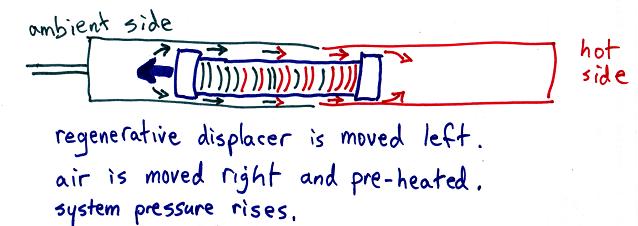 ambient side
hot
side
regenerative displacer is moved left.
air is moved right and pre-heated.
system pressure rises.